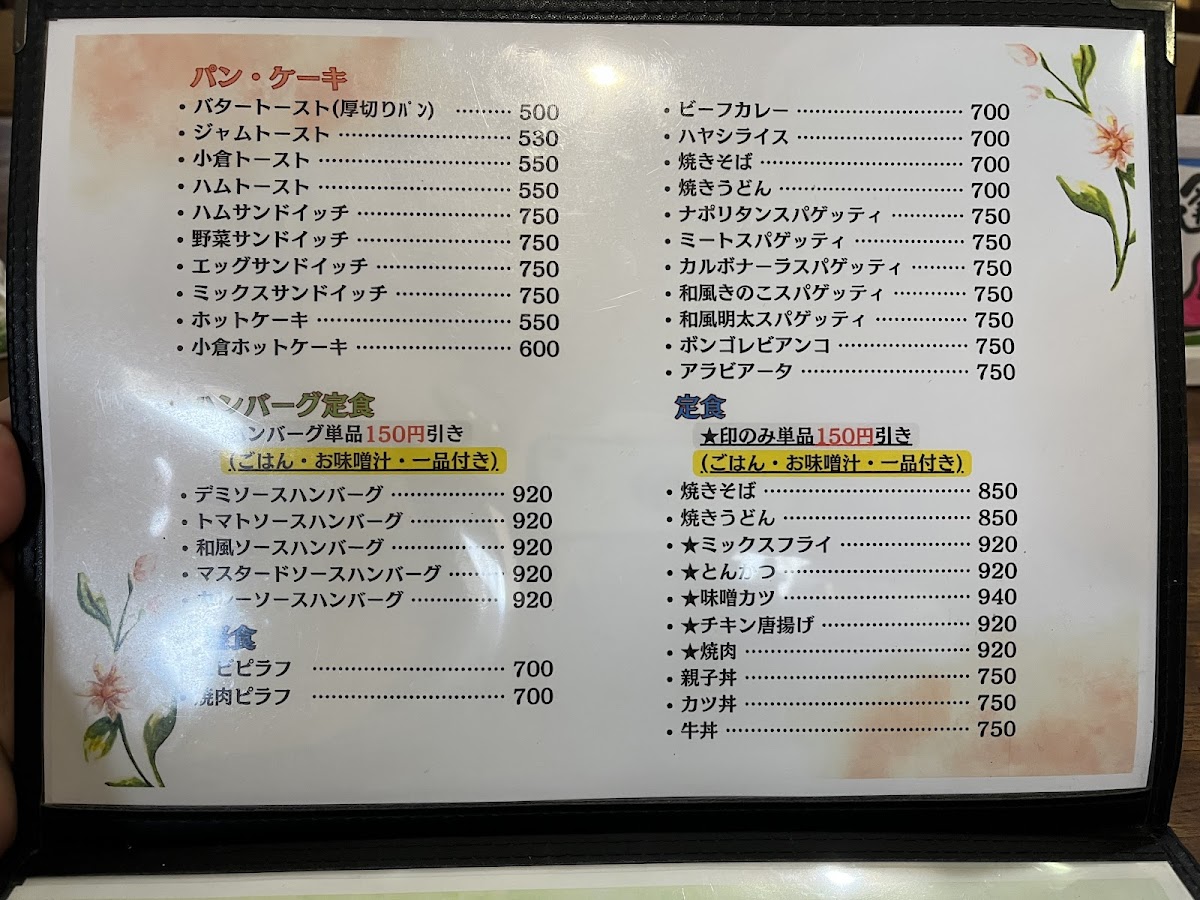 パン・ケーキ
・バタートースト(厚切りパン) ……… 500
・ジャムトースト ……………………… 530
・小倉トースト ………………………… 550
・ハムトースト ………………………… 550
・ハムサンドイッチ …………………… 750
・野菜サンドイッチ …………………… 750
・エッグサンドイッチ ………………… 750
・ミックスサンドイッチ ……………… 750
・ホットケーキ ………………………… 550
・小倉ホットケーキ …………………… 600
ハンバーグ定食
ハンバーグ単品150円引き
(ごはん・お味噌汁・一品付き)
・デミソースハンバーグ ……………… 920
・トマトソースハンバーグ …………… 920
・和風ソースハンバーグ ……………… 920
・マスタードソースハンバーグ ……… 920
ソースハンバーグ …………… 920
食
ピラフ ………………………… 700
・焼肉ピラフ ………………………… 700
・ビーフカレー ……………………… 700
・ハヤシライス ……………………… 700
・焼きそば …………………………… 700
・焼きうどん ………………………… 700
・ナポリタンスパゲッティ ………… 750
・ミートスパゲッティ ……………… 750
・カルボナーラスパゲッティ ……… 750
・和風きのこスパゲッティ ………… 750
・和風明太スパゲッティ …………… 750
・ボンゴレビアンコ ………………… 750
・アラビアータ ……………………… 750
定食
★印のみ単品150円引き
(ごはん・お味噌汁・一品付き)
・焼きそば …………………………… 850
・焼きうどん ………………………… 850
・★ミックスフライ ………………… 920
・★とんかつ ………………………… 920
・★味噌カツ ………………………… 940
・★チキン唐揚げ …………………… 920
・★焼肉 ……………………………… 920
・親子丼 ……………………………… 750
・カツ丼 ……………………………… 750
・牛丼 ………………………………… 750